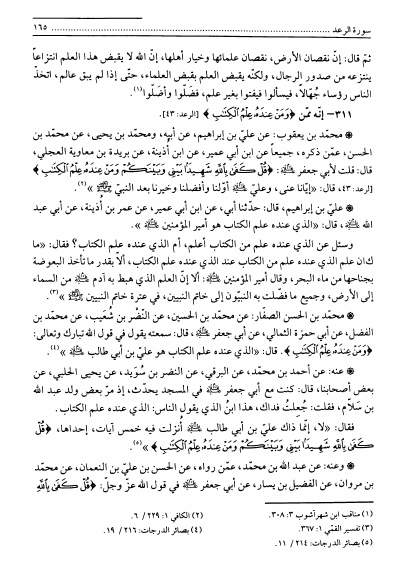 سورة الرعد ١٦٥
ثمّ قال: إنّ نقصان الأرض، نقصان علمائها وخيار أهلها، إنّ الله لا يقبض هذا العلم انتزاعاً
ينتزعه من صدور الرجال، ولكنّه يقبض العلم بقبض العلماء، حتّى إذا لم يبق عالم، اتخذ
الناس رؤساء جُهّالاً، فيسألوا فيفتوا بغير علم، فضَلّوا وأضلّوا(١).
٣١١- إنّه ممّن ﴿وَمَنْ عِندَهُ عِلْمُ الْكِتَبِ﴾ [الرعد: ٤٣].
* محمّد بن يعقوب: عن عليّ بن إبراهيم، عن أبيه، ومحمّد بن يحيى، عن محمّد بن
الحسن، عمّن ذكره، جميعاً عن ابن أبي عمير، عن ابن أُذينة، عن بريدة بن معاوية العجلي،
قال: قلت لأبي جعفر: ﴿قُلْ كَفَى بِاللَّهِ شَهِيدًا بَيْنِي وَبَيْنَكُمْ وَمَنْ عِندَهُ عِلْمُ الْكِتَبِ﴾
[الرعد: ٤٣]، قال: «إيّانا عنى، وعليّ أوّلنا وأفضلنا وخيرنا بعد النبيّ»(٢).
* عليّ بن إبراهيم، قال: حدّثني أبي، عن ابن أبي عمير، عن عمر بن أُذينة، عن أبي عبد
الله، قال: «الذي عنده علم الكتاب هو أمير المؤمنين».
وسئل عن الذي عنده علم من الكتاب أعلم، أم الذي عنده علم الكتاب؟ فقال: «ما
كان علم الذي عنده علم من الكتاب عند الذي عنده علم الكتاب، ألا بقدر ما تأخذ البعوضة
بجناحها من ماء البحر، وقال أمير المؤمنين: ألا إنّ العلم الذي هبط به آدم من السماء
إلى الأرض، وجميع ما فضلت به النبيّون إلى خاتم النبيين، في عترة خاتم النبيين»(٣).
* محمّد بن الحسن الصفّار: عن محمّد بن الحسين، عن النّضْر بن شُعيب، عن محمّد بن
الفضل، عن أبي حمزة الثمالي، عن أبي جعفر، قال: سمعته يقول في قول الله تبارك وتعالى:
﴿وَمَنْ عِندَهُ عِلْمُ الْكِتَبِ﴾. قال: «الذي عنده علم الكتاب هو عليّ بن أبي طالب»(٤).
* عنه: عن أحمد بن محمّد، عن البرقي، عن النضر بن سُويد، عن يحيى الحلبي، عن
بعض أصحابنا، قال: كنت مع أبي جعفر في المسجد يحدّث، إذ مرّ بعض ولد عبد الله
بن سَلام، فقلت: جُعلتُ فداك، هذا ابنُ الذي يقول الناس: الذي عنده علم الكتاب.
فقال: «لا، إنّما ذاك عليّ بن أبي طالب أُنزلت فيه خمس آيات، إحداها، ﴿قُلْ
كَفَى بِاللَّهِ شَهِيدًا بَيْنِي وَبَيْنَكُمْ وَمَنْ عِندَهُ عِلْمُ الْكِتَبِ﴾»(٥).
* وعنه: عن عبد الله بن محمّد، عمّن رواه، عن الحسن بن عليّ بن النعمان، عن محمّد
بن مروان، عن الفضيل بن يسار، عن أبي جعفر في قول الله عزّ وجلّ: ﴿قُلْ كَفَى بِاللَّهِ
(١) مناقب ابن شهرآشوب ٣: ٣٠٨. (٢) الكافي ١: ٢٢٩ / ٦.
(٣) تفسير القمّي ١: ٣٦٧. (٤) بصائر الدرجات: ٢١٦ / ١٩.
(٥) بصائر الدرجات: ٢١٤ / ١١.